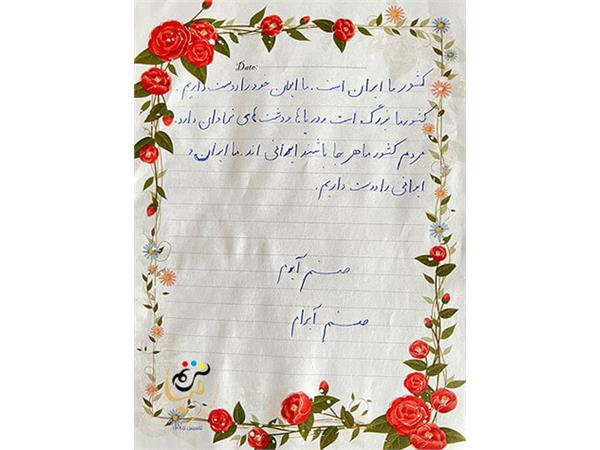 Date:
کشور ما ایران است. ما ایران خود را دوست داریم.
کشور ما بزرگ است و دریاها و دشت های فراوان دارد.
مردم کشور ما هر جا باشند ایرانی اند. ما ایران و
ایرانی را دوست داریم.
صنم آبرم
صنم آبرام